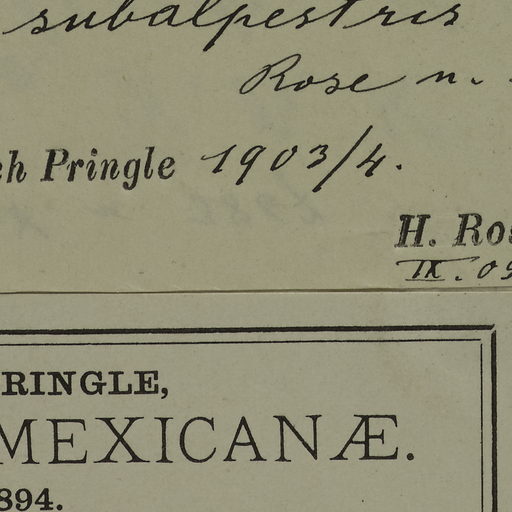 subalpestris
Rose n.
ch Pringle 1903/4.
H. Ros
IX. 09
RINGLE,
MEXICANÆ.
894.